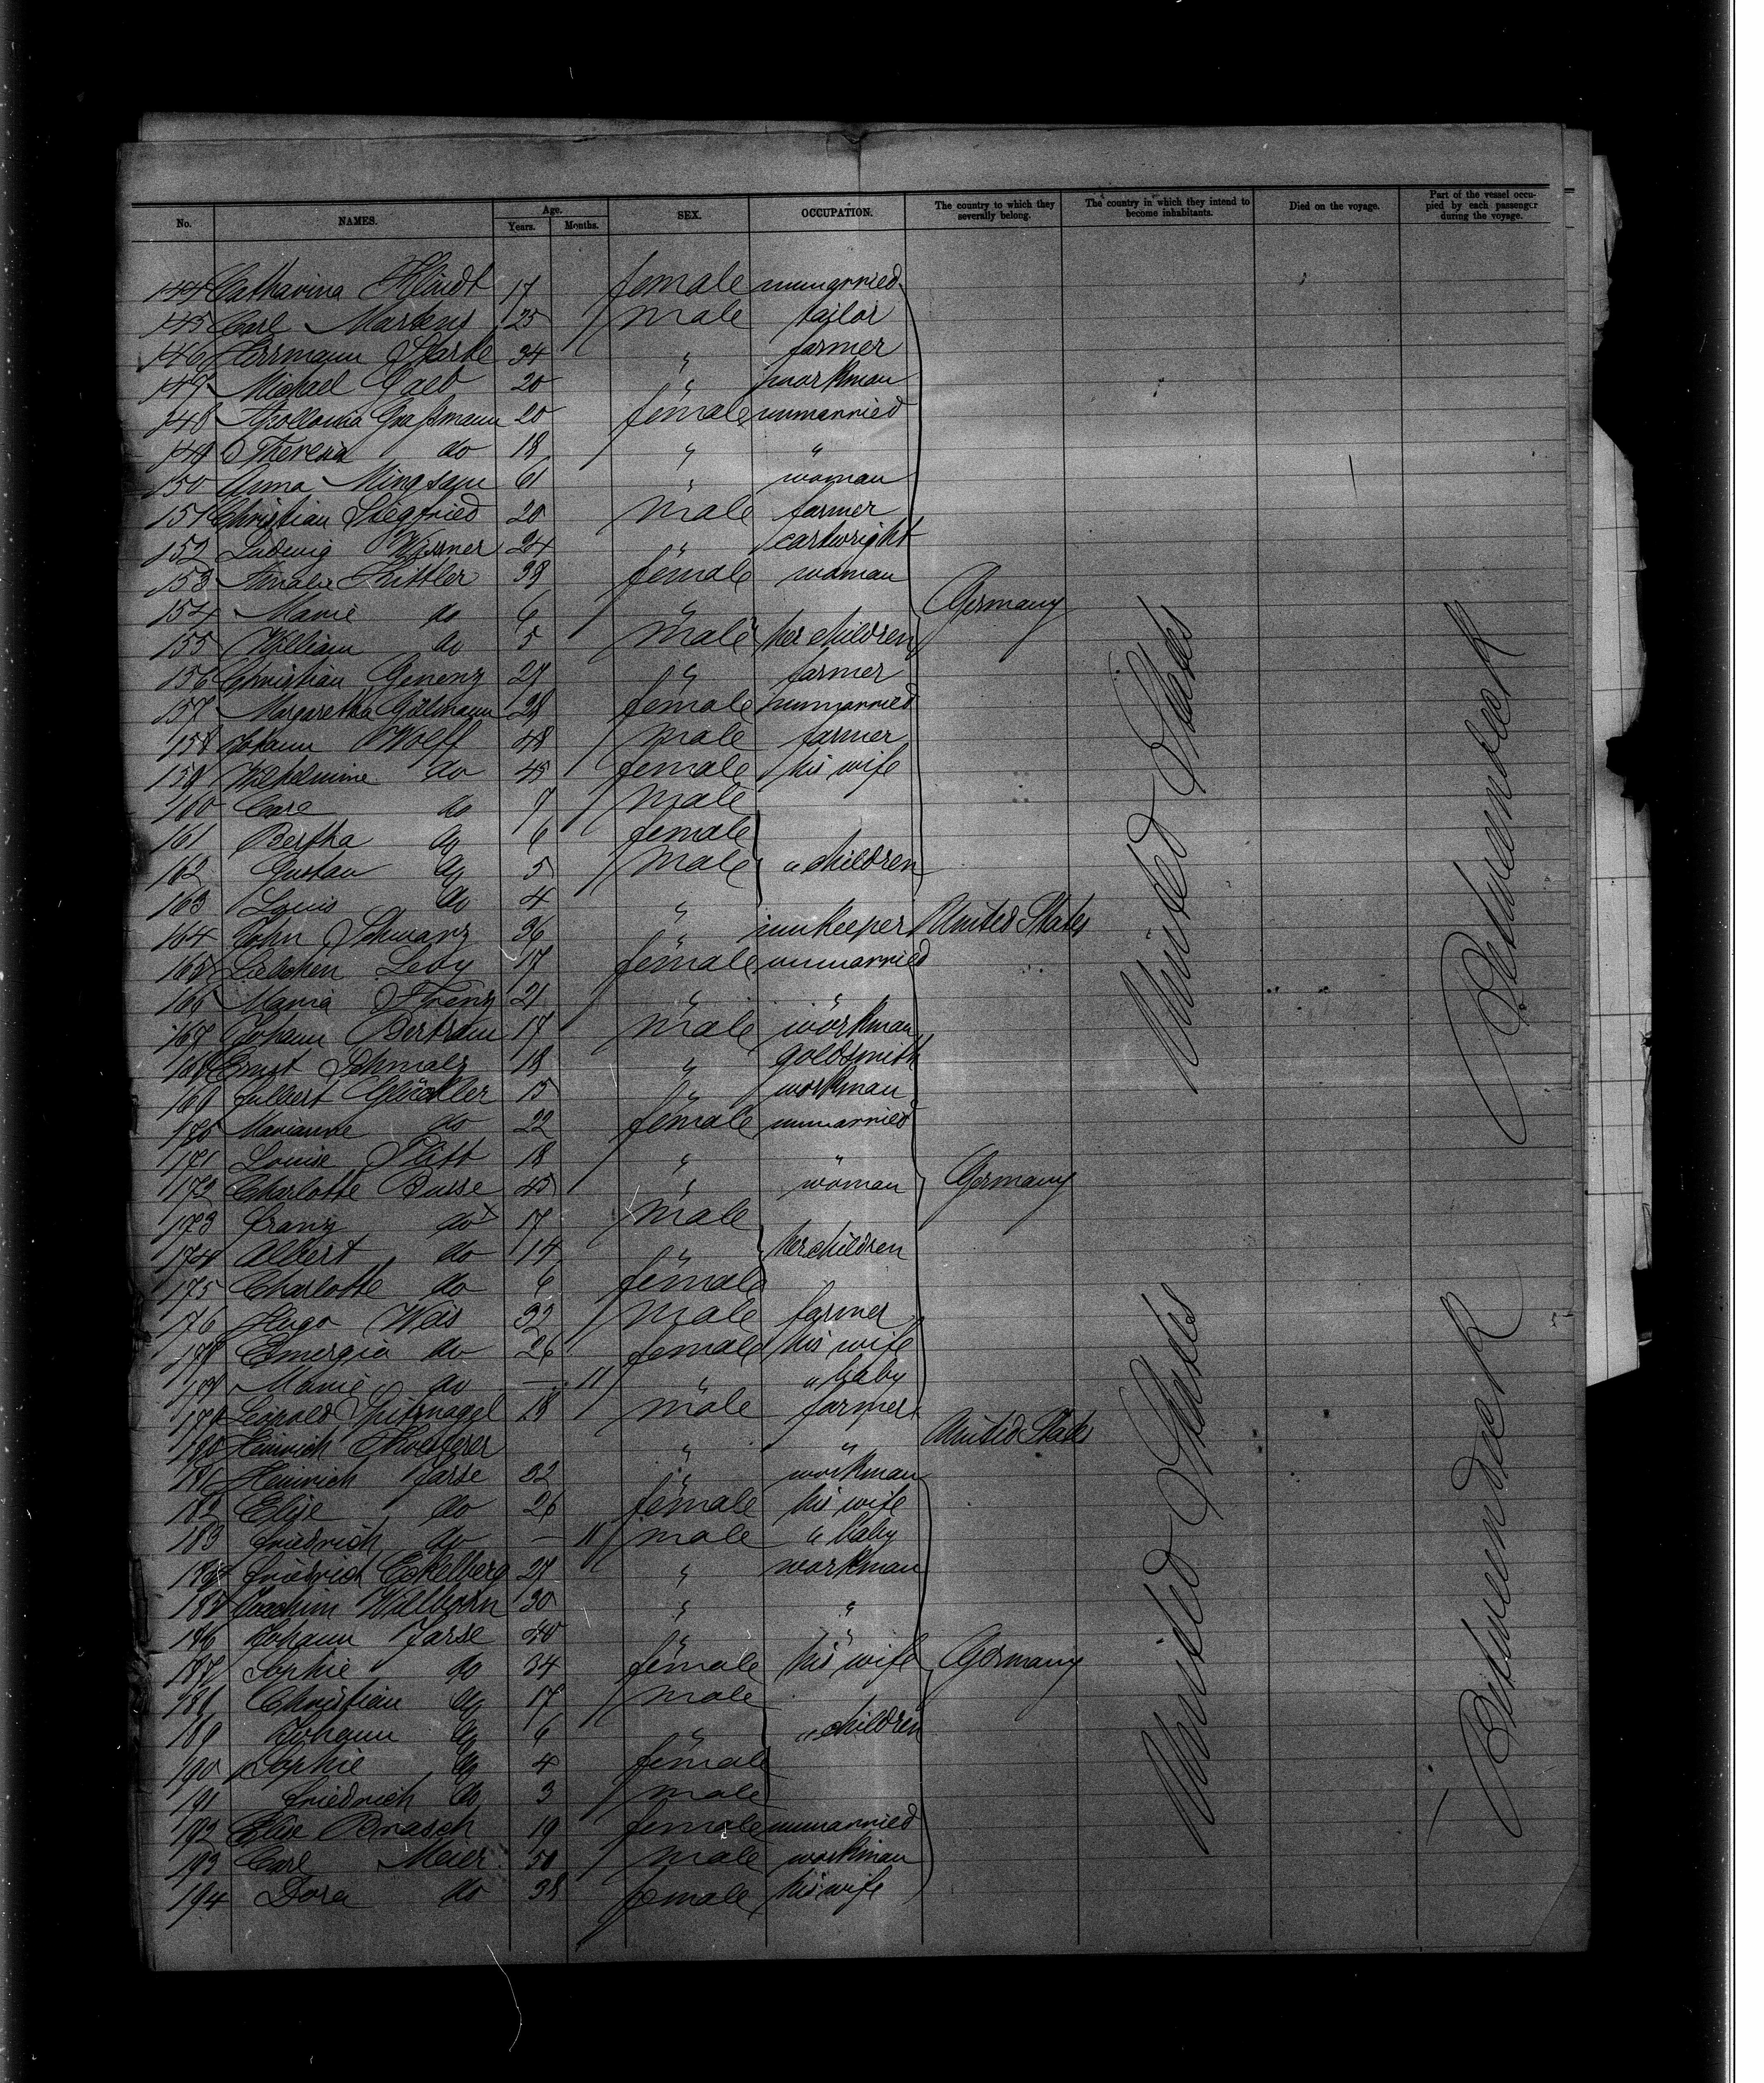 No. NAMES. Age. Years. Months. SEX. OCCUPATION. The country to which they severally belong. The country in which they intend to become inhabitants. Died on the voyage. Part of the vessel occupied by each passenger during the voyage.
144 Catharina 17 female unmarried
145 Carl Martens 25 male tailor
146 Herrmann Starke 34 " farmer
147 Michael Galb 20 " workman
148 Apollonia Graßmann 20 female unmarried
149 Theresia do 18 " "
150 Anna 61 " woman
151 Christian Siegfried 20 male farmer
152 Ludwig Wissner 24 " cartwright
153 Amalie 38 female woman
154 Marie do 6 " Germany
155 William do 5 male her children
156 Christian Genenz 27 " farmer
157 Margaretha 28 female unmarried
158 Johann Wolff 48 male farmer
159 Wilhelmine do 45 female his wife
160 Carl do 7 male
161 Bertha do 6 female
162 Gustav do 5 male " children
163 Louis do 4 "
164 John Schwarz 36 " innkeeper United States
165 Liebchen Levy 17 female unmarried
166 Maria Frenz 21 " "
167 Johann Bertram 17 male workman
168 Ernst Schmalz 18 " goldsmith
169 Glückler 15 " workman
170 Marianne do 22 female unmarried
171 Louise Platt 18 " "
172 Charlotte Busse 45 " woman Germany
173 Franz do x 17 male
174 Albert do 14 " her children
175 Charlotte do 6 female
176 Hugo Weis 32 male farmer
177 Emergia do 26 female his wife
178 Marie do — 11 " " baby
179 Leopold Spitznagel 28 male farmer
180 Heinrich " " United States
181 Heinrich Jarse 32 " workman
182 Elise do 26 female his wife
183 Friedrich do — 11 male " baby
184 Friedrich Eckelberg 27 " workman
185 Joachim Willborn 30 " "
186 Johann Jarse 40 " "
187 Sophie do 34 female his wife Germany
188 Christian do 17 male
189 Johann do 6 " " children
190 Sophie do 4 female
191 Friedrich do 3 male
192 Elise Brasch 19 female unmarried
193 Carl Meier 50 male workman
194 Dora do 38 female his wife
United States
Betweendeck
United States
Betweendeck